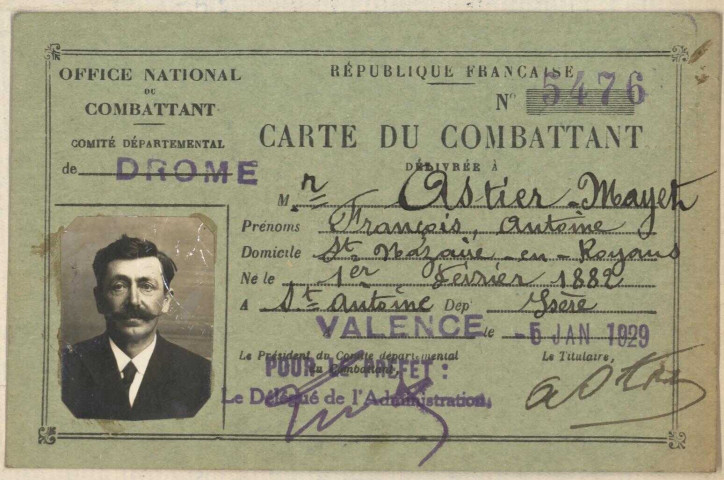 OFFICE NATIONAL
DU
COMBATTANT
COMITÉ DÉPARTEMENTAL
de DROME
RÉPUBLIQUE FRANÇAISE
N° 5476
CARTE DU COMBATTANT
DÉLIVRÉE À
M. r Astier-Mayet
Prénoms François, Antoine
Domicile St Nazaire-en-Royans
Né le 1er février 1882
A St Antoine Dep' Isère
VALENCE le -5 JAN 1929
Le Président du Comité départemental
du Combattant,
Le Titulaire,
POUR LE PREFET :
Le Délégué de l'Administration,